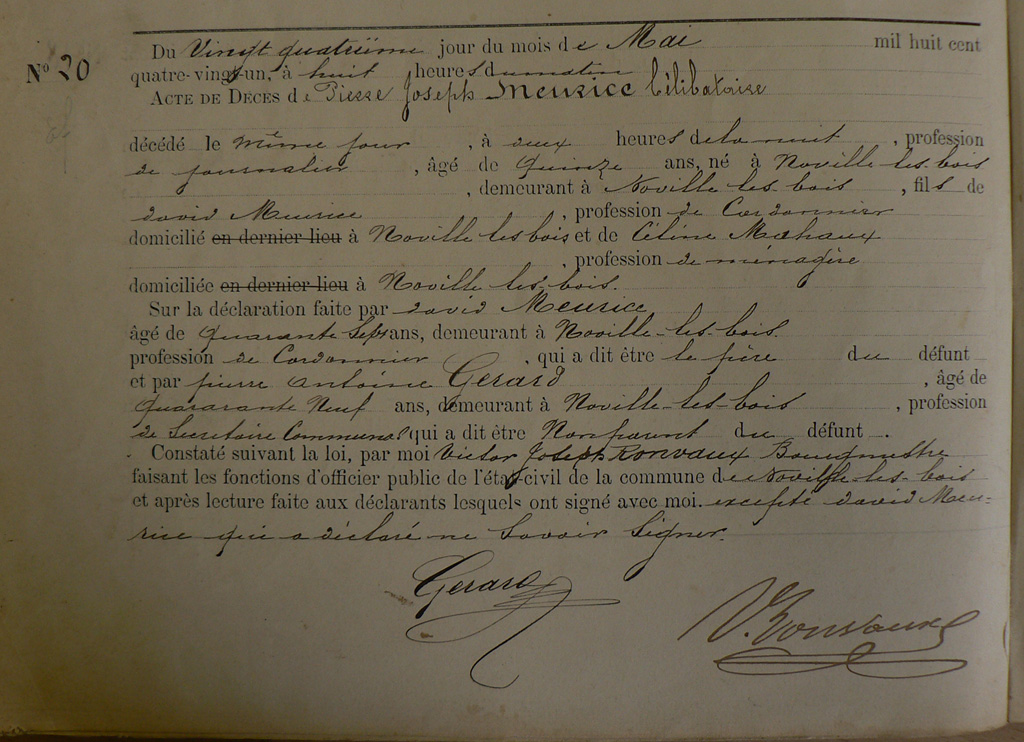 Du Vingt quatrième jour du mois de Mai mil huit cent
N° 20
quatre-vingt-un, à huit heures du matin
ACTE DE DÉCÈS de Pierre Joseph Meurice Célibataire
décédé le même jour, à deux heures de la nuit, profession
de journalier, âgé de quinze ans, né à Noville-les-bois
, demeurant à Noville les-bois, fils de
david Meurice, profession de Cordonnier
domicilié en dernier lieu à Noville les bois et de Céline Mahaux
, profession de ménagère
domiciliée en dernier lieu à Noville les-bois.
Sur la déclaration faite par david Meurice
âgé de quarante Sept ans, demeurant à Noville-les-bois.
profession de Cordonnier, qui a dit être le père du défunt
et par pierre antoine Gerard, âgé de
quararante Neuf ans, demeurant à Noville-les-bois, profession
de Secretaire Communal qui a dit être Non parent du défunt.
Constaté suivant la loi, par moi Victor Joseph Ronvaux Bourgmestre
faisant les fonctions d'officier public de l'état-civil de la commune de Noville-les-bois
et après lecture faite aux déclarants lesquels ont signé avec moi. excepté david Meu-
rice qui a déclaré ne Savoir Signer.
Gerard
V. Ronvaux